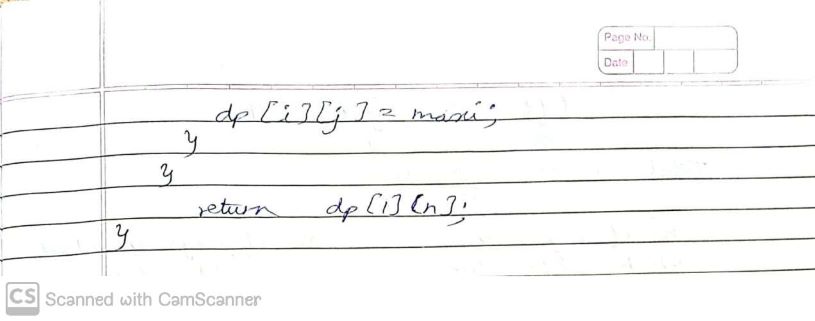 Page No.
Date
dp[i][j] = maxi;
}
}
return dp[1][n];
}
CS Scanned with CamScanner